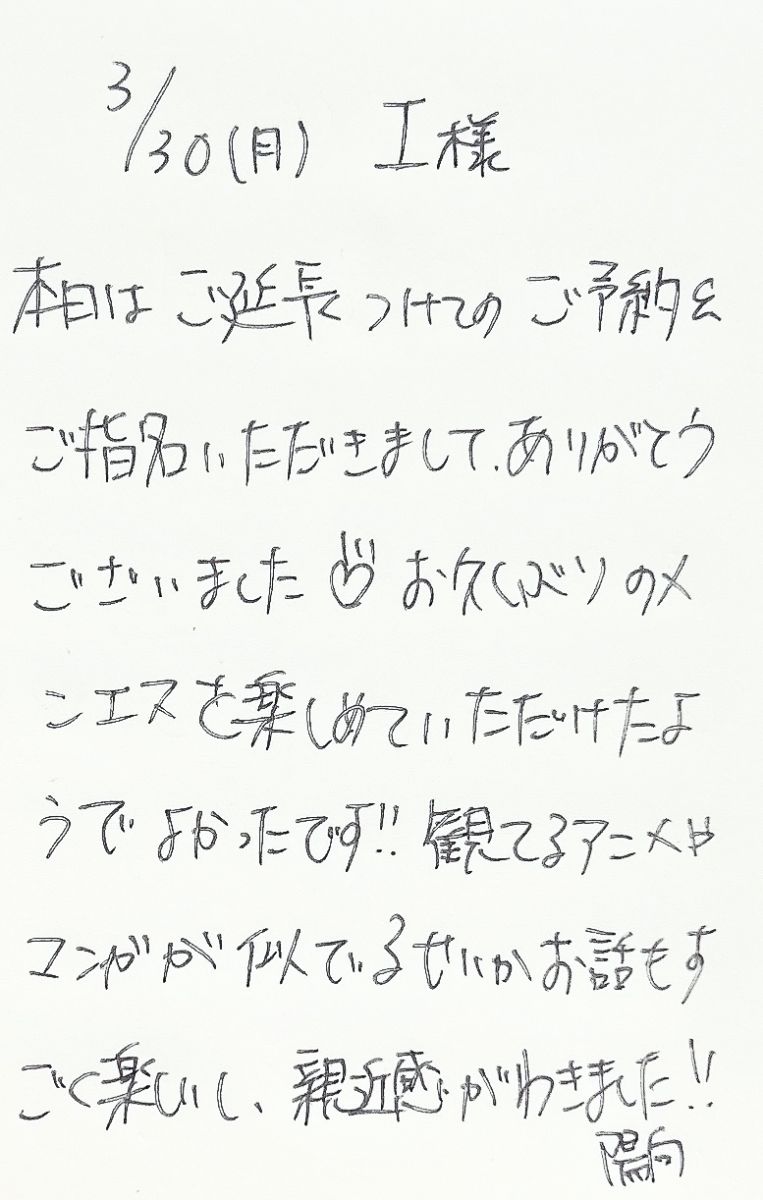 3/30(月) I様
本日は ご延長つけての ご予約&
ご指名いただきまして、ありがとう
ございました♡ お久しぶりのメ
ンエスを楽しめていただけたよ
うで よかったです!! 観てるアニメや
マンガが 似ているせいかお話もす
ごく楽しいし、親近感がわきました!!
陽向